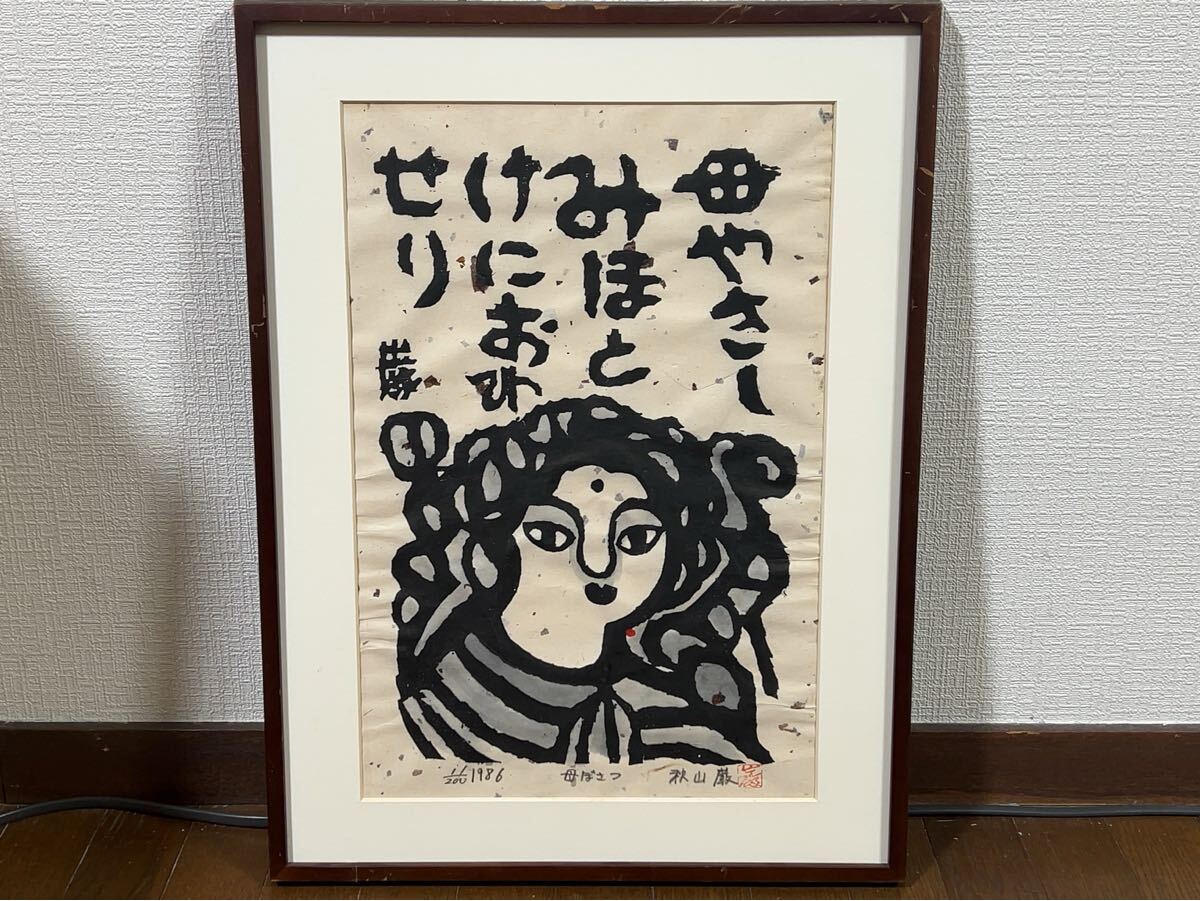 母やさし
みほと
けにおわ
せり
11/200 1986 母ぼさつ 秋山巌